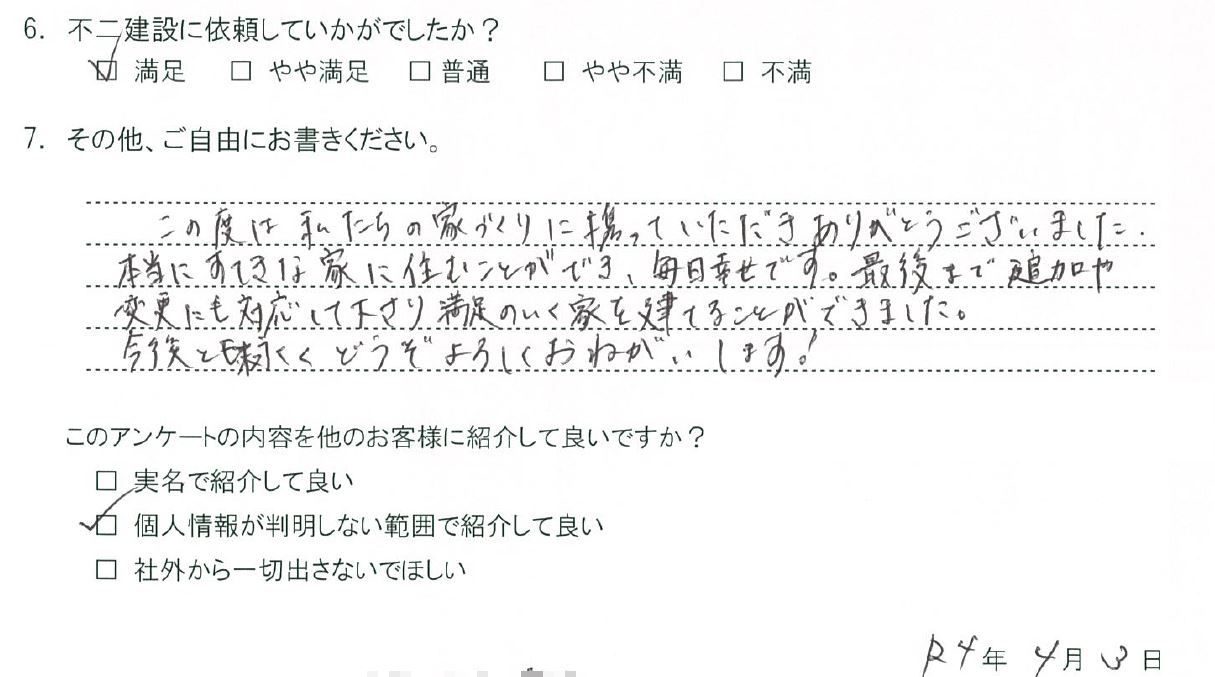 6. 不二建設に依頼していかがでしたか？
☑ 満足 □ やや満足 □ 普通 □ やや不満 □ 不満
7. その他、ご自由にお書きください。
この度は私たちの家づくりに携っていただきありがとうございました.
本当にすてきな家に住むことができ、毎日幸せです。最後まで追加や
変更にも対応して下さり満足のいく家を建てることができました。
今後とも末永くどうぞよろしくおねがいします！
このアンケートの内容を他のお客様に紹介して良いですか？
□ 実名で紹介して良い
☑ 個人情報が判明しない範囲で紹介して良い
□ 社外から一切出さないでほしい
R4年 4月 3日